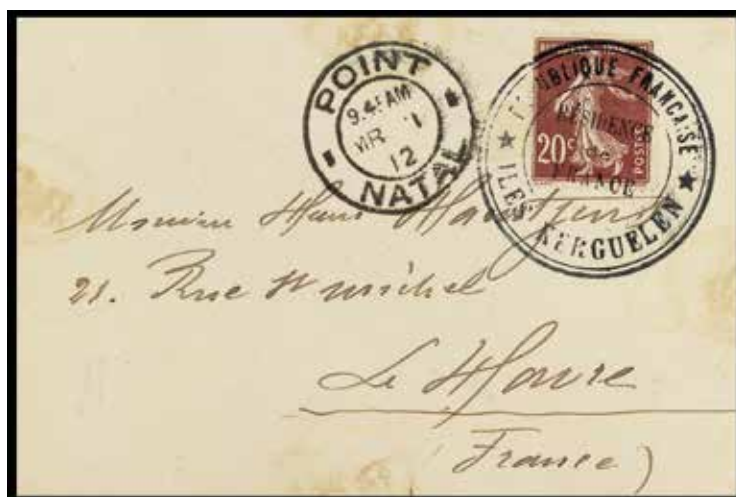 POINT
9.45 AM
MR 1
12
NATAL
RÉPUBLIQUE FRANÇAISE
RÉSIDENCE
DE
FRANCE
ILES KERGUELEN
20c
POSTES
Monsieur
21. Rue St michel
Le Havre
(France)